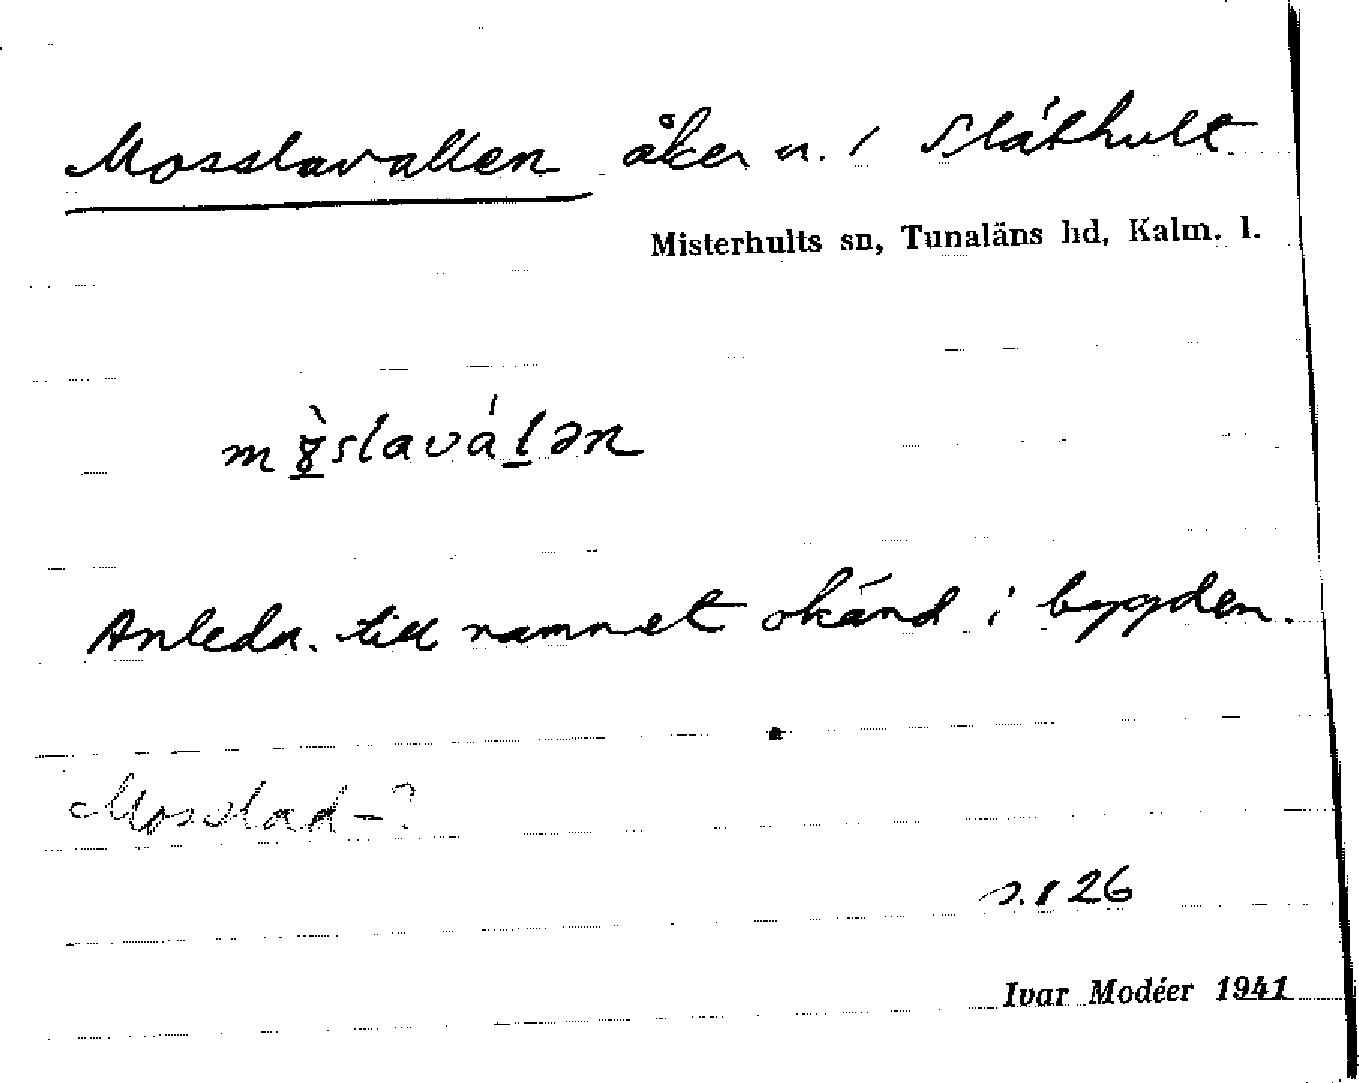 Mosslavallen åker n. i Slåthult
Misterhults sn, Tunaläns hd, Kalm. l.
m slaválən
Anledn. till namnet okänd i bygden.
Mosslad-?
s. 126
Ivar Modéer 1941